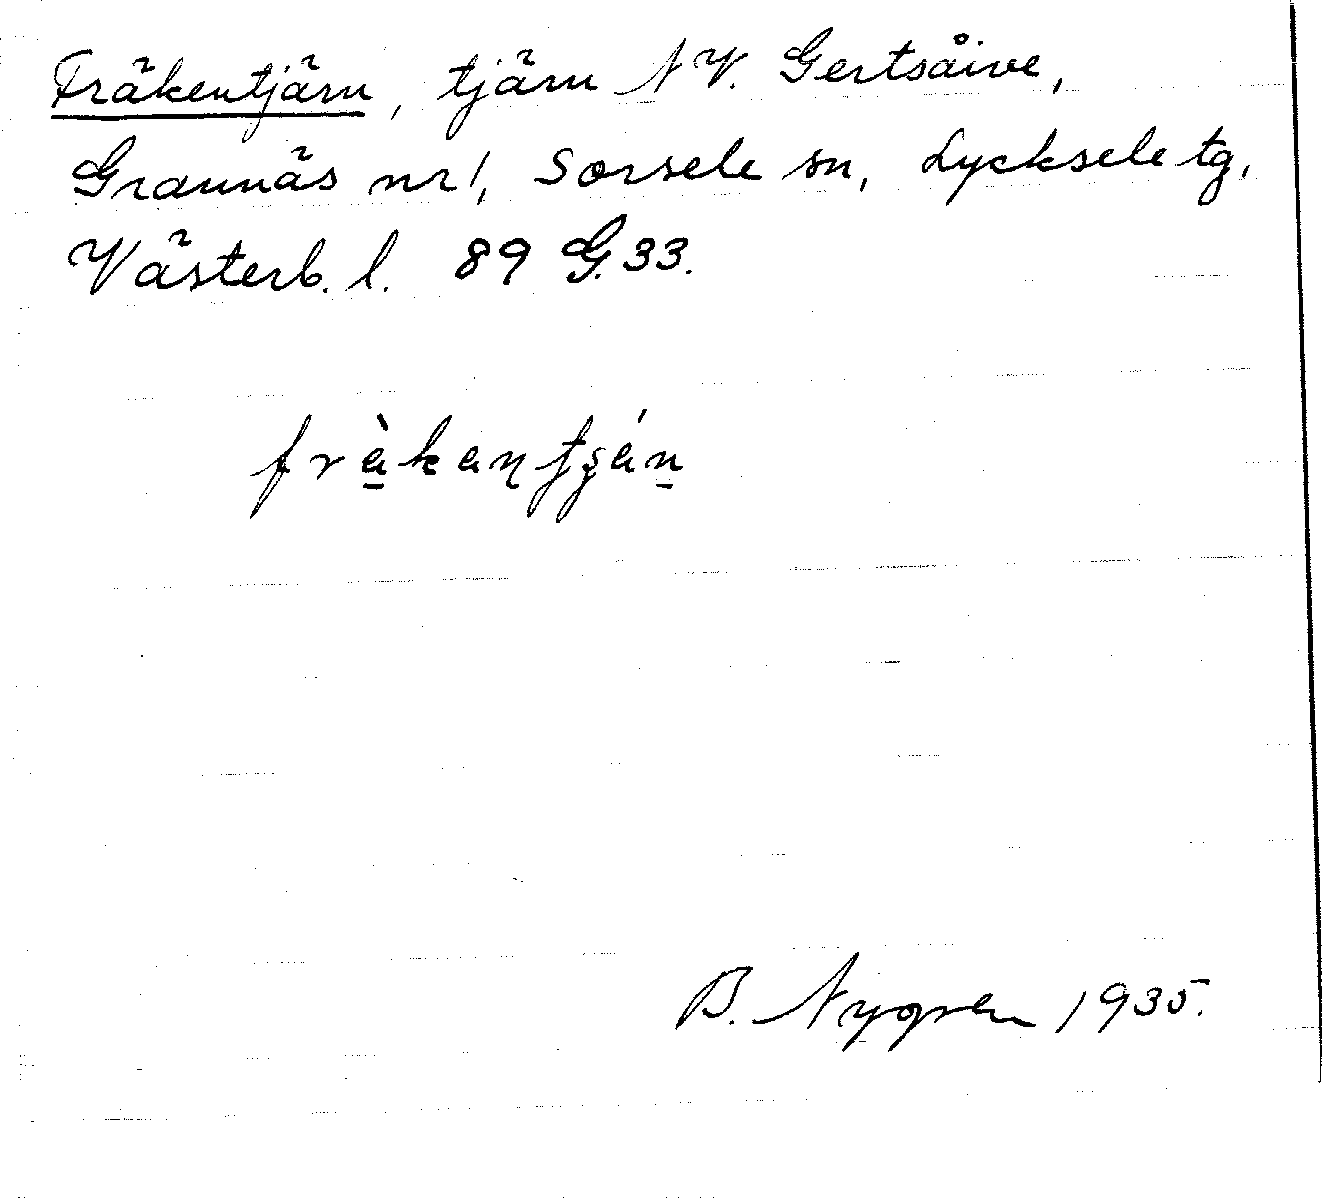 Fräkentjärn, tjärn NV. Gertsåive,
Grannäs nr 1, Sorsele sn, Lycksele tg,
Västerb. l. 89 G. 33.
B. Nygren 1935.